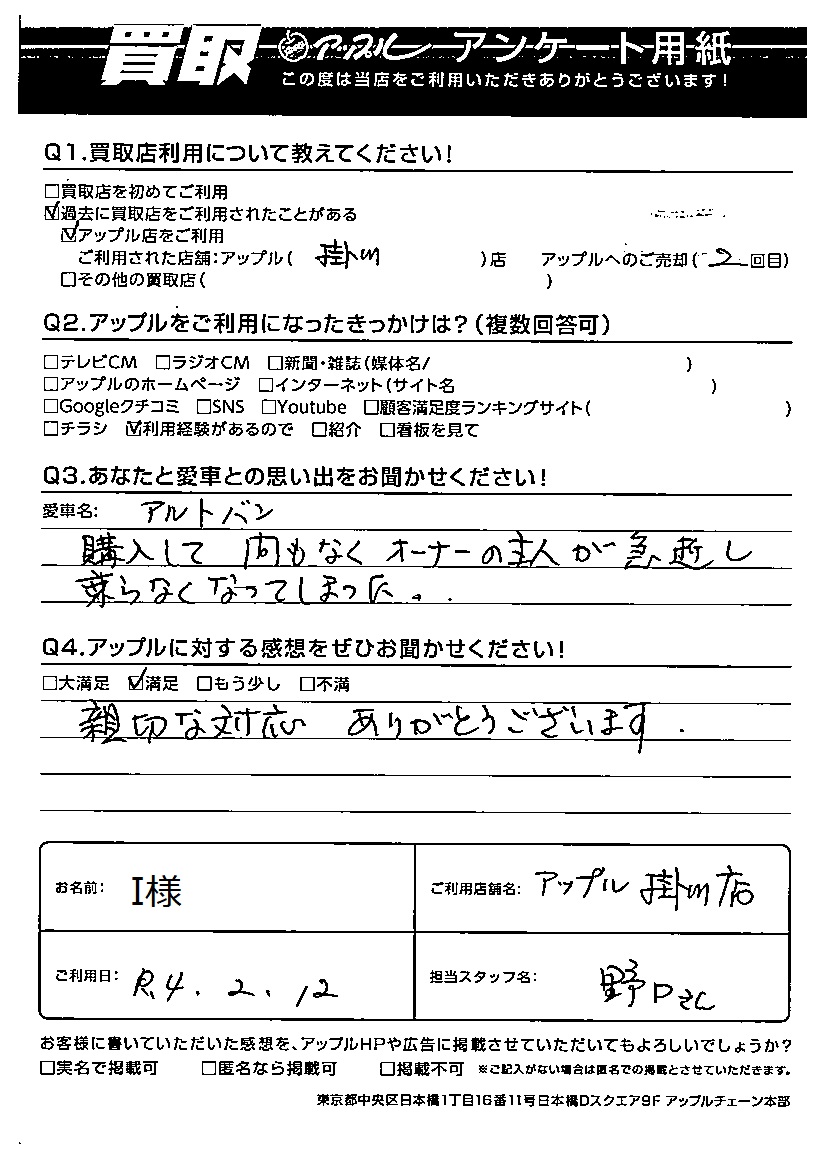 買取 アップル アンケート用紙
この度は当店をご利用いただきありがとうございます!
Q1.買取店利用について教えてください!
□買取店を初めてご利用
☑過去に買取店をご利用されたことがある
☑アップル店をご利用
ご利用された店舗:アップル( 掛川 )店 アップルへのご売却( 2 回目)
□その他の買取店( )
Q2.アップルをご利用になったきっかけは?(複数回答可)
□テレビCM □ラジオCM □新聞・雑誌(媒体名/ )
□アップルのホームページ □インターネット(サイト名 )
□Googleクチコミ □SNS □Youtube □顧客満足度ランキングサイト( )
□チラシ ☑利用経験があるので □紹介 □看板を見て
Q3.あなたと愛車との思い出をお聞かせください!
愛車名: アルトバン
購入して 間もなく オーナーの主人が 急逝し
乗らなくなってしまった。.
Q4.アップルに対する感想をぜひお聞かせください!
□大満足 ☑満足 □もう少し □不満
親切な対応 ありがとうございます.
お名前: I様
ご利用店舗名: アップル 掛川店
ご利用日: R.4.2.12
担当スタッフ名: 野口さん
お客様に書いていただいた感想を、アップルHPや広告に掲載させていただいてもよろしいでしょうか?
□実名で掲載可 □匿名なら掲載可 □掲載不可 ※ご記入がない場合は匿名での掲載とさせていただきます。
東京都中央区日本橋1丁目16番11号日本橋Dスクエア9F アップルチェーン本部